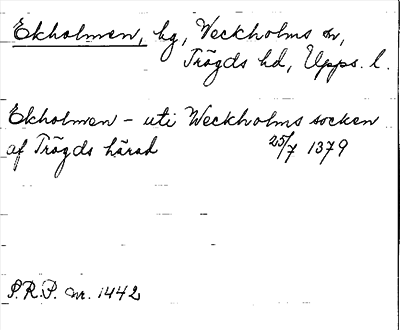 Ekholmen, hg, Veckholms sn,
Trögds hd, Upps. l.
Ekholmen - uti Weckholms socken
af Trögds härad 25/7 1379
S.R.P. nr. 1442